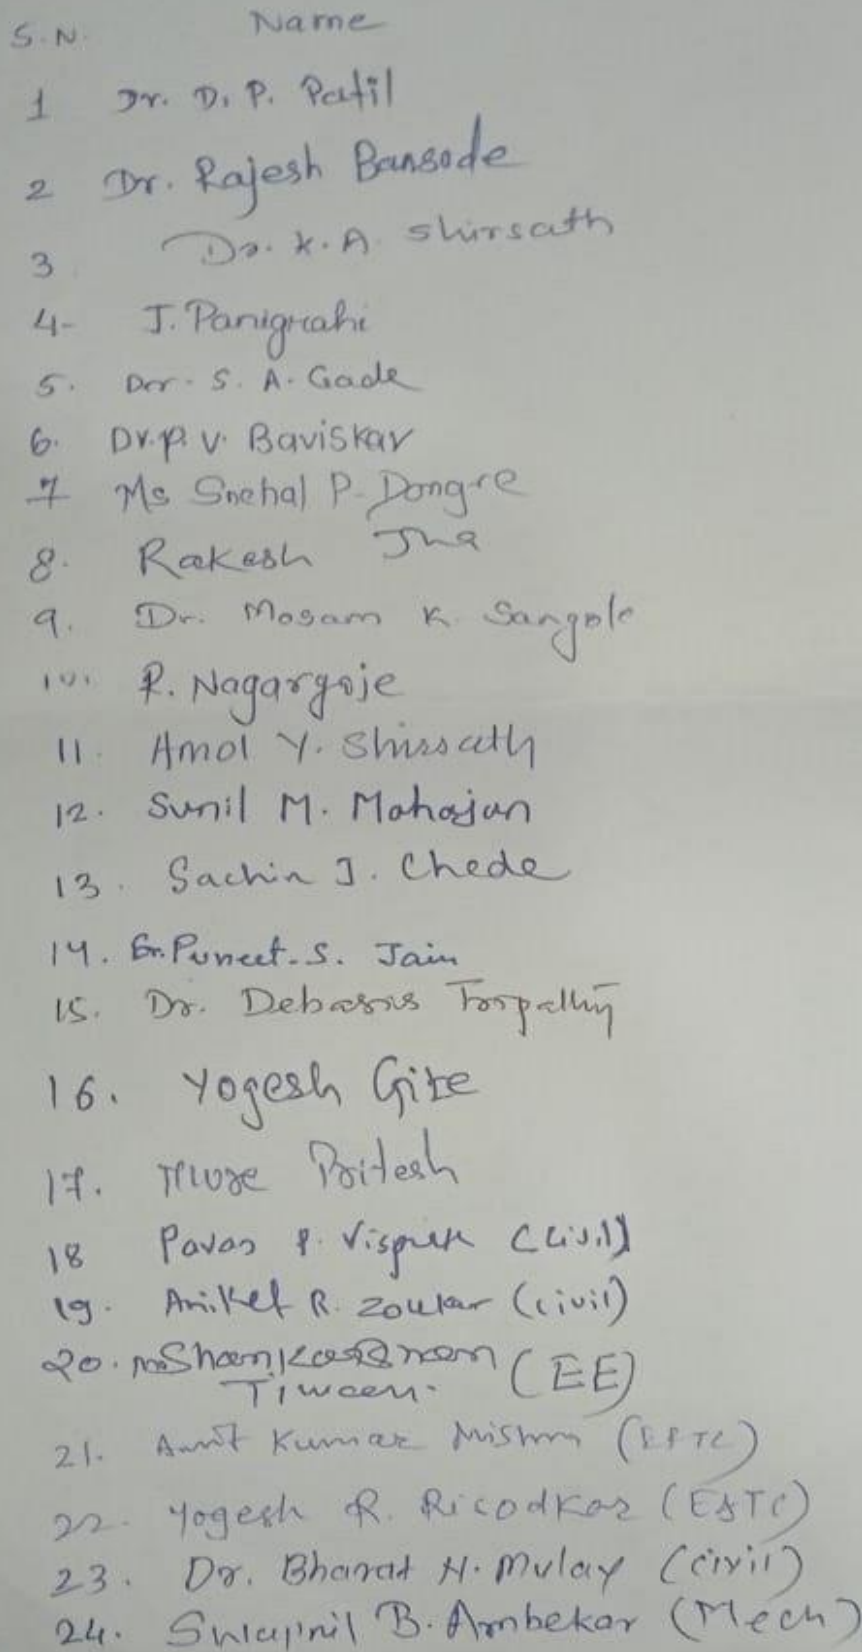 S.N. Name
1 Dr. D. P. Patil
2 Dr. Rajesh Bansode
3 Dr. K. A. Shirsath
4- J. Panigrahi
5. Dr. S. A. Gade
6. Dr. P. V. Baviskar
7 Ms Snehal P. Dongre
8. Rakesh Jha
9. Dr. Mosam K. Sangole
10. R. Nagargoje
11. Amol Y. Shirsath
12. Sunil M. Mahajan
13. Sachin J. Chede
14. Er. Puneet. S. Jain
15. Dr. Debasis Tripathy
16. Yogesh Gite
17. Pritesh
18 Pavan P. (Civil)
19. Aniket R. Zoukar (civil)
20. (EE)
21. Amit Kumar Mishra (E&TC)
22. Yogesh R. Ricodkar (E&TC)
23. Dr. Bharat H. Mulay (Civil)
24. Swapnil B. Ambekar (Mech)